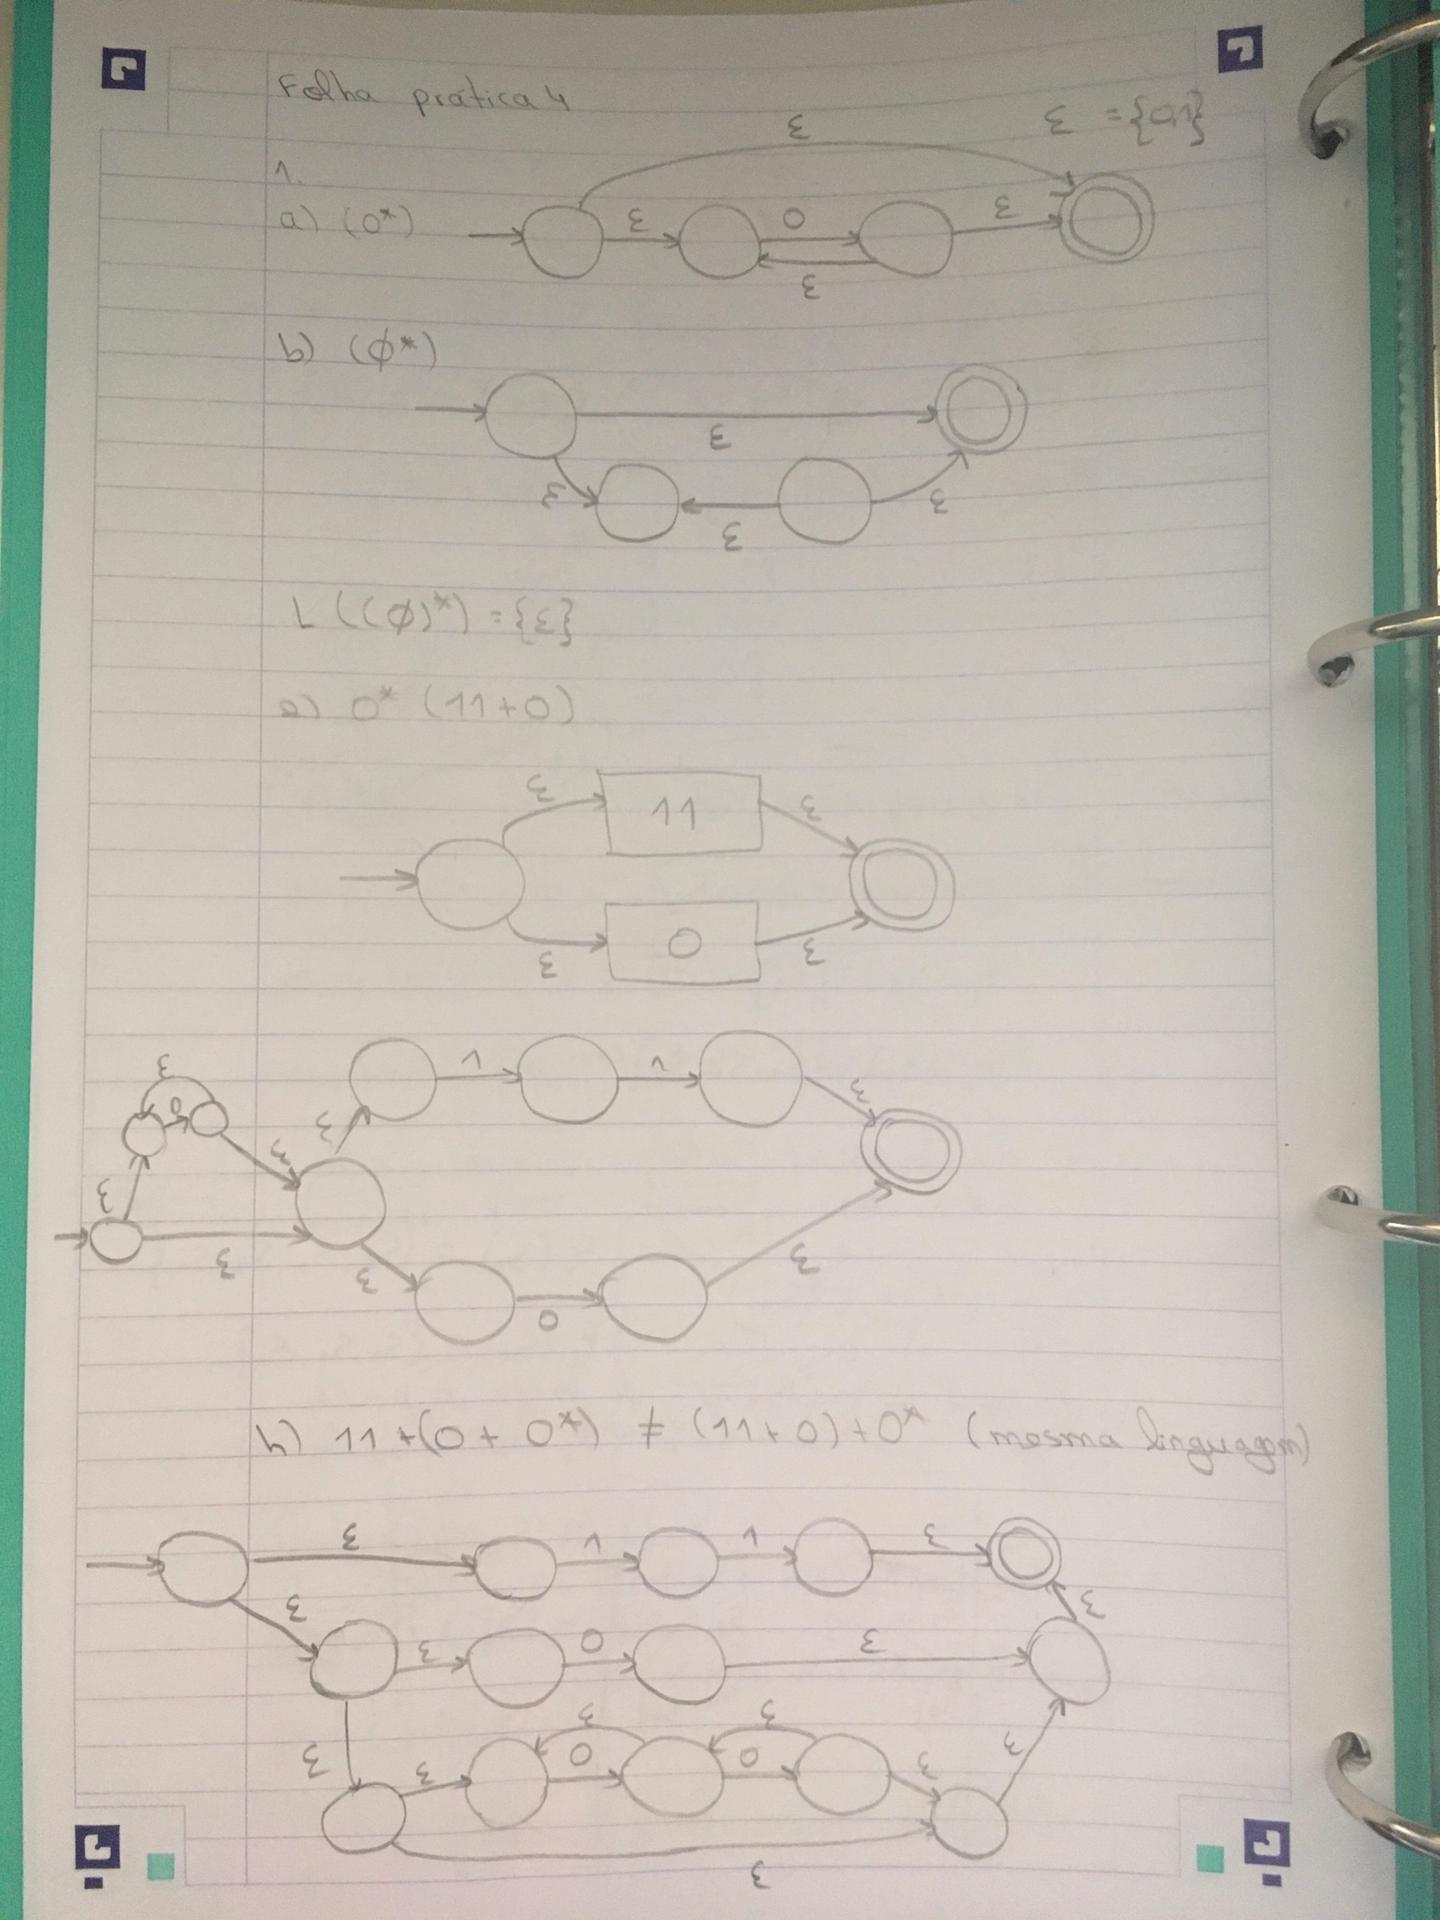 Folha prática 4
Σ = {0,1}
1.
a) (0*)
ε
ε 0 ε
ε
b) (∅*)
ε
ε ε ε
L ((∅)*) = {ε}
e) 0* (11+0)
ε 11 ε
ε 0 ε
ε 0 ε
ε 1 1 ε
ε ε
ε 0 ε
h) 11+(0 + 0*) ≠ (11+0)+0* (mesma linguagem)
ε 1 1 ε
ε ε
ε 0 ε
ε ε
ε ε 0 0 ε ε
ε